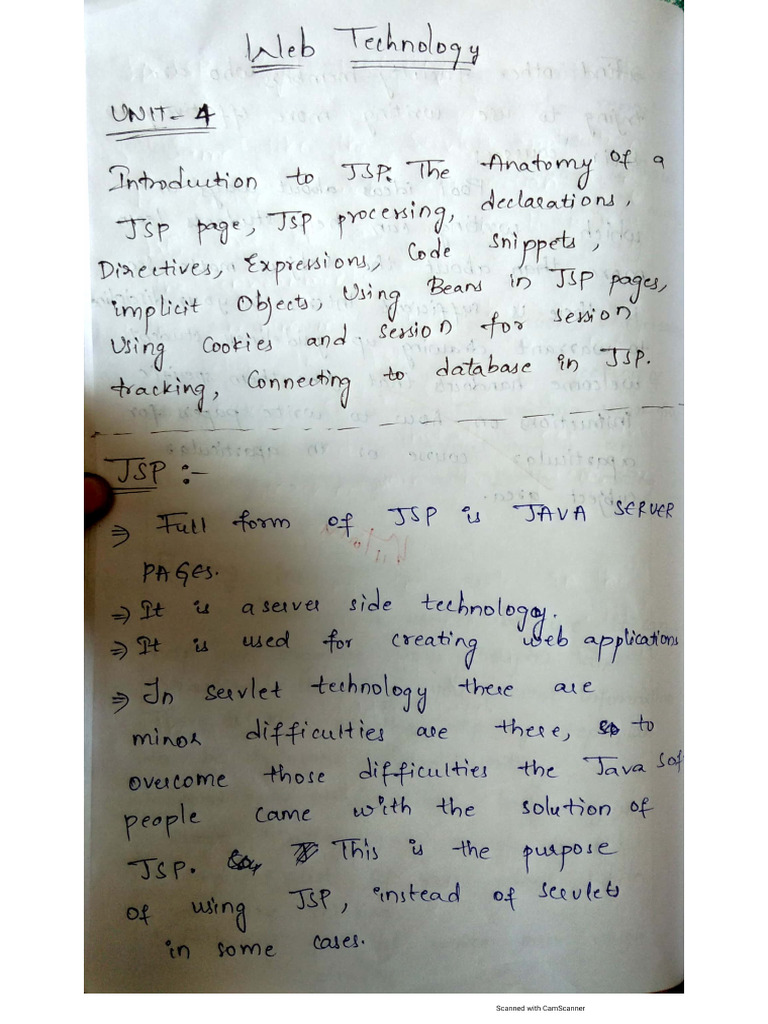 Web Technology
UNIT-4
Introduction to JSP: The Anatomy of a
JSP page, JSP processing, declarations,
Directives, Expressions, Code snippets,
implicit Objects, Using Beans in JSP pages,
Using Cookies and session for session
tracking, Connecting to database in JSP.
JSP :-
⇒ Full form of JSP is JAVA SERVER
PAGES.
⇒ It is a server side technology.
⇒ It is used for creating web applications
⇒ In servlet technology there are
minor difficulties are there, to
overcome those difficulties the Java sof
people came with the solution of
JSP. This is the purpose
of using JSP, instead of servlets
in some cases.
Scanned with CamScanner